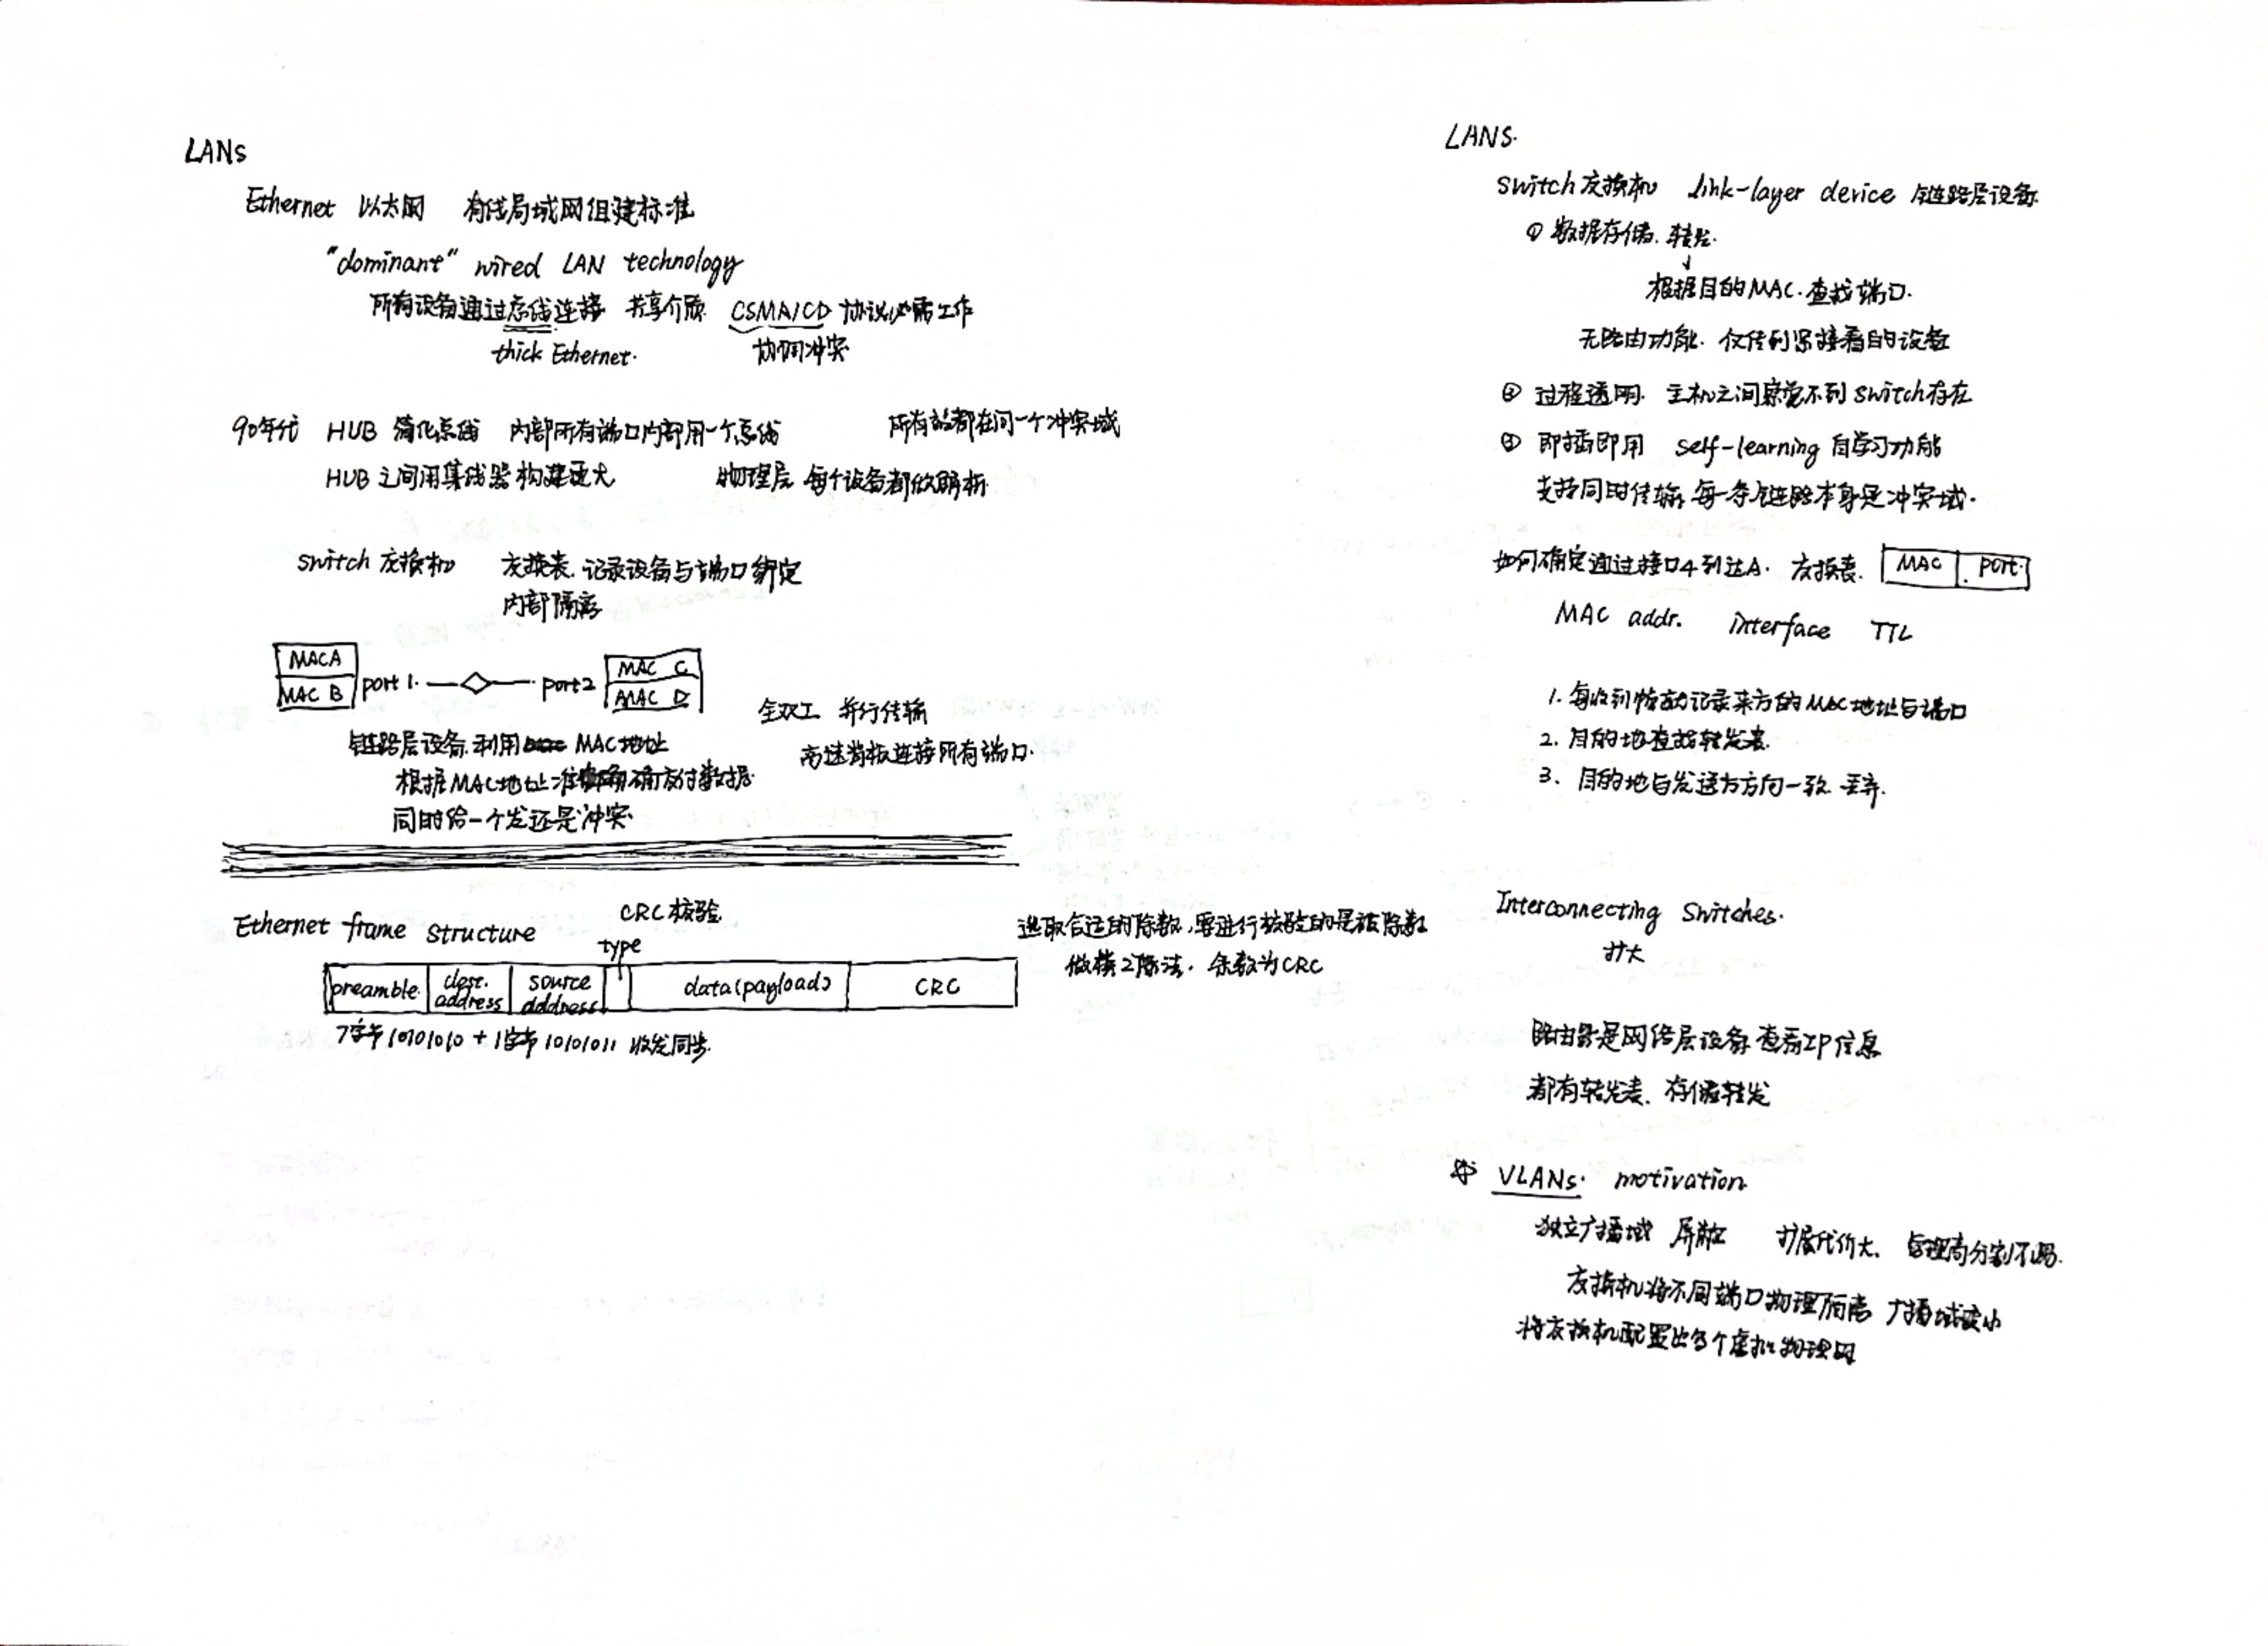 LANs
Ethernet 以太网 有线局域网组建标准
"dominant" wired LAN technology
所有设备通过总线连接 共享介质 CSMA/CD 协议必需工作
thick Ethernet. 协调冲突
90年代 HUB 简化总线 内部所有端口内部用一个总线 所有站都在同一个冲突域
HUB 之间用集线器构建更大 物理层 每个设备都做解析
switch 交换机 交换表.记录设备与端口绑定
内部隔离
MAC A
MAC B
port 1. port 2
MAC C
MAC D
全双工 并行传输
高速背板连接所有端口.
链路层设备.利用 MAC地址
根据MAC地址准确交付数据
同时给一个发还是冲突
Ethernet frame structure CRC校验
type
选取合适的除数,要进行校验的是被除数
做模2除法.余数为CRC
preamble dest. address source address data(payload) CRC
7字节10101010 + 1字节10101011 收发同步.
LANS.
switch交换机 link-layer device 链路层设备
① 数据存储.转发.
根据目的MAC.查找端口.
无路由功能.仅传到紧接着的设备
② 过程透明.主机之间察觉不到switch存在
③ 即插即用 self-learning 自学习功能
支持同时传输.每一条链路本身是冲突域.
如何确定通过接口4到达A. 交换表. MAC port.
MAC addr. interface TTL
1. 每收到帧 记录来方的MAC地址与端口
2. 目的地查找转发表.
3. 目的地与发送方方向一致.丢弃.
Interconnecting Switches.
扩大
路由器是网络层设备.查看IP信息
都有转发表.存储转发
VLANs. motivation
独立广播域 屏蔽 扩展代价大. 管理高分割不易.
交换机将不同端口物理隔离 广播域变小
将交换机配置出多个虚拟物理网